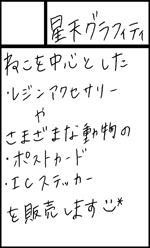 星天グラフィティ
ねこを中心とした
・レジンアクセサリー
や
さまざまな動物の
・ポストカード
・ICステッカー
を販売します